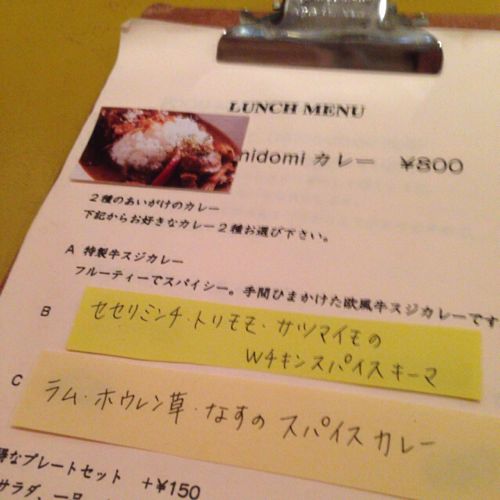 LUNCH MENU
midomi カレー ¥800
2種のあいがけのカレー
下記からお好きなカレー2種お選び下さい。
A 特製牛スジカレー
フルーティーでスパイシー。手間ひまかけた欧風牛スジカレーです
B セセリミンチ・トリモモ・サツマイモの
Wチキンスパイスキーマ
C ラム・ホウレン草・なすの スパイスカレー
得なプレートセット +¥150
サラダ、一品